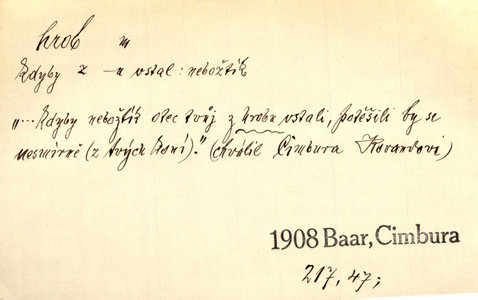 hrob m
Kdyby z -u vstal : nebožtík
„... Kdyby nebožtík otec tvůj z hrobu vstali, potěšili by se
nesmírně (z tvých koní)." (chválil Cimbura Kovandovi)
1908 Baar, Cimbura
217, 47;